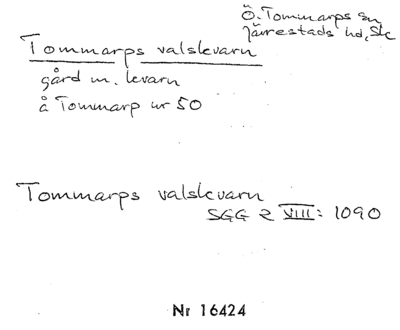 Ö. Tommarps sn
Järrestads hd, Sk
Tommarps valskvarn
gård m. kvarn
å Tommarp nr 50
Tommarps valskvarn
SGG 2 VIII: 1090
Nr 16424